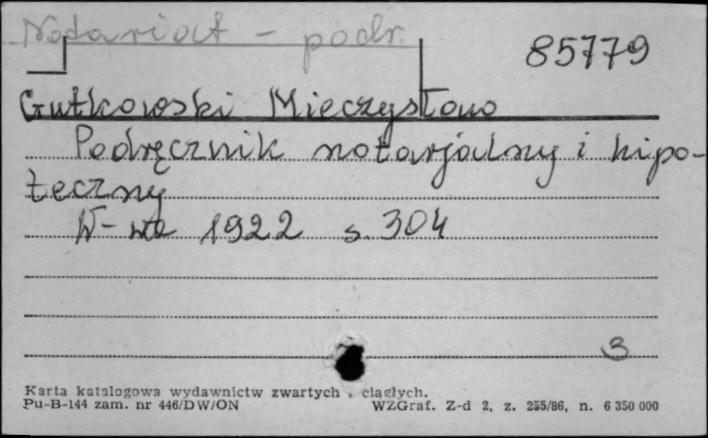 Notariat - podr.
85779
Gutkowski Mieczysław
Podręcznik notarjalny i hipo-
teczny
W-wa 1922 s. 304
3
Karta katalogowa wydawnictw zwartych i ciągłych.
Pu-B-144 zam. nr 446/DW/ON WZGraf. Z-d 2, z. 255/86, n. 6 350 000